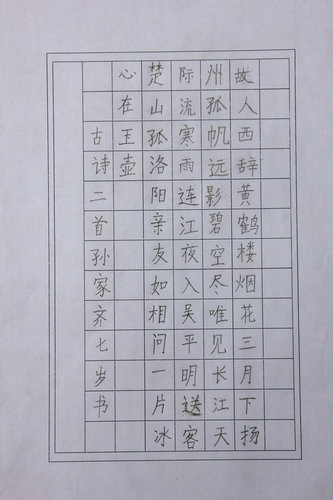 故人西辞黄鹤楼烟花三月下扬
州孤帆远影碧空尽唯见长江天
际流寒雨连江夜入吴平明送客
楚山孤洛阳亲友如相问一片冰
心在王壶
古诗二首孙家齐七岁书